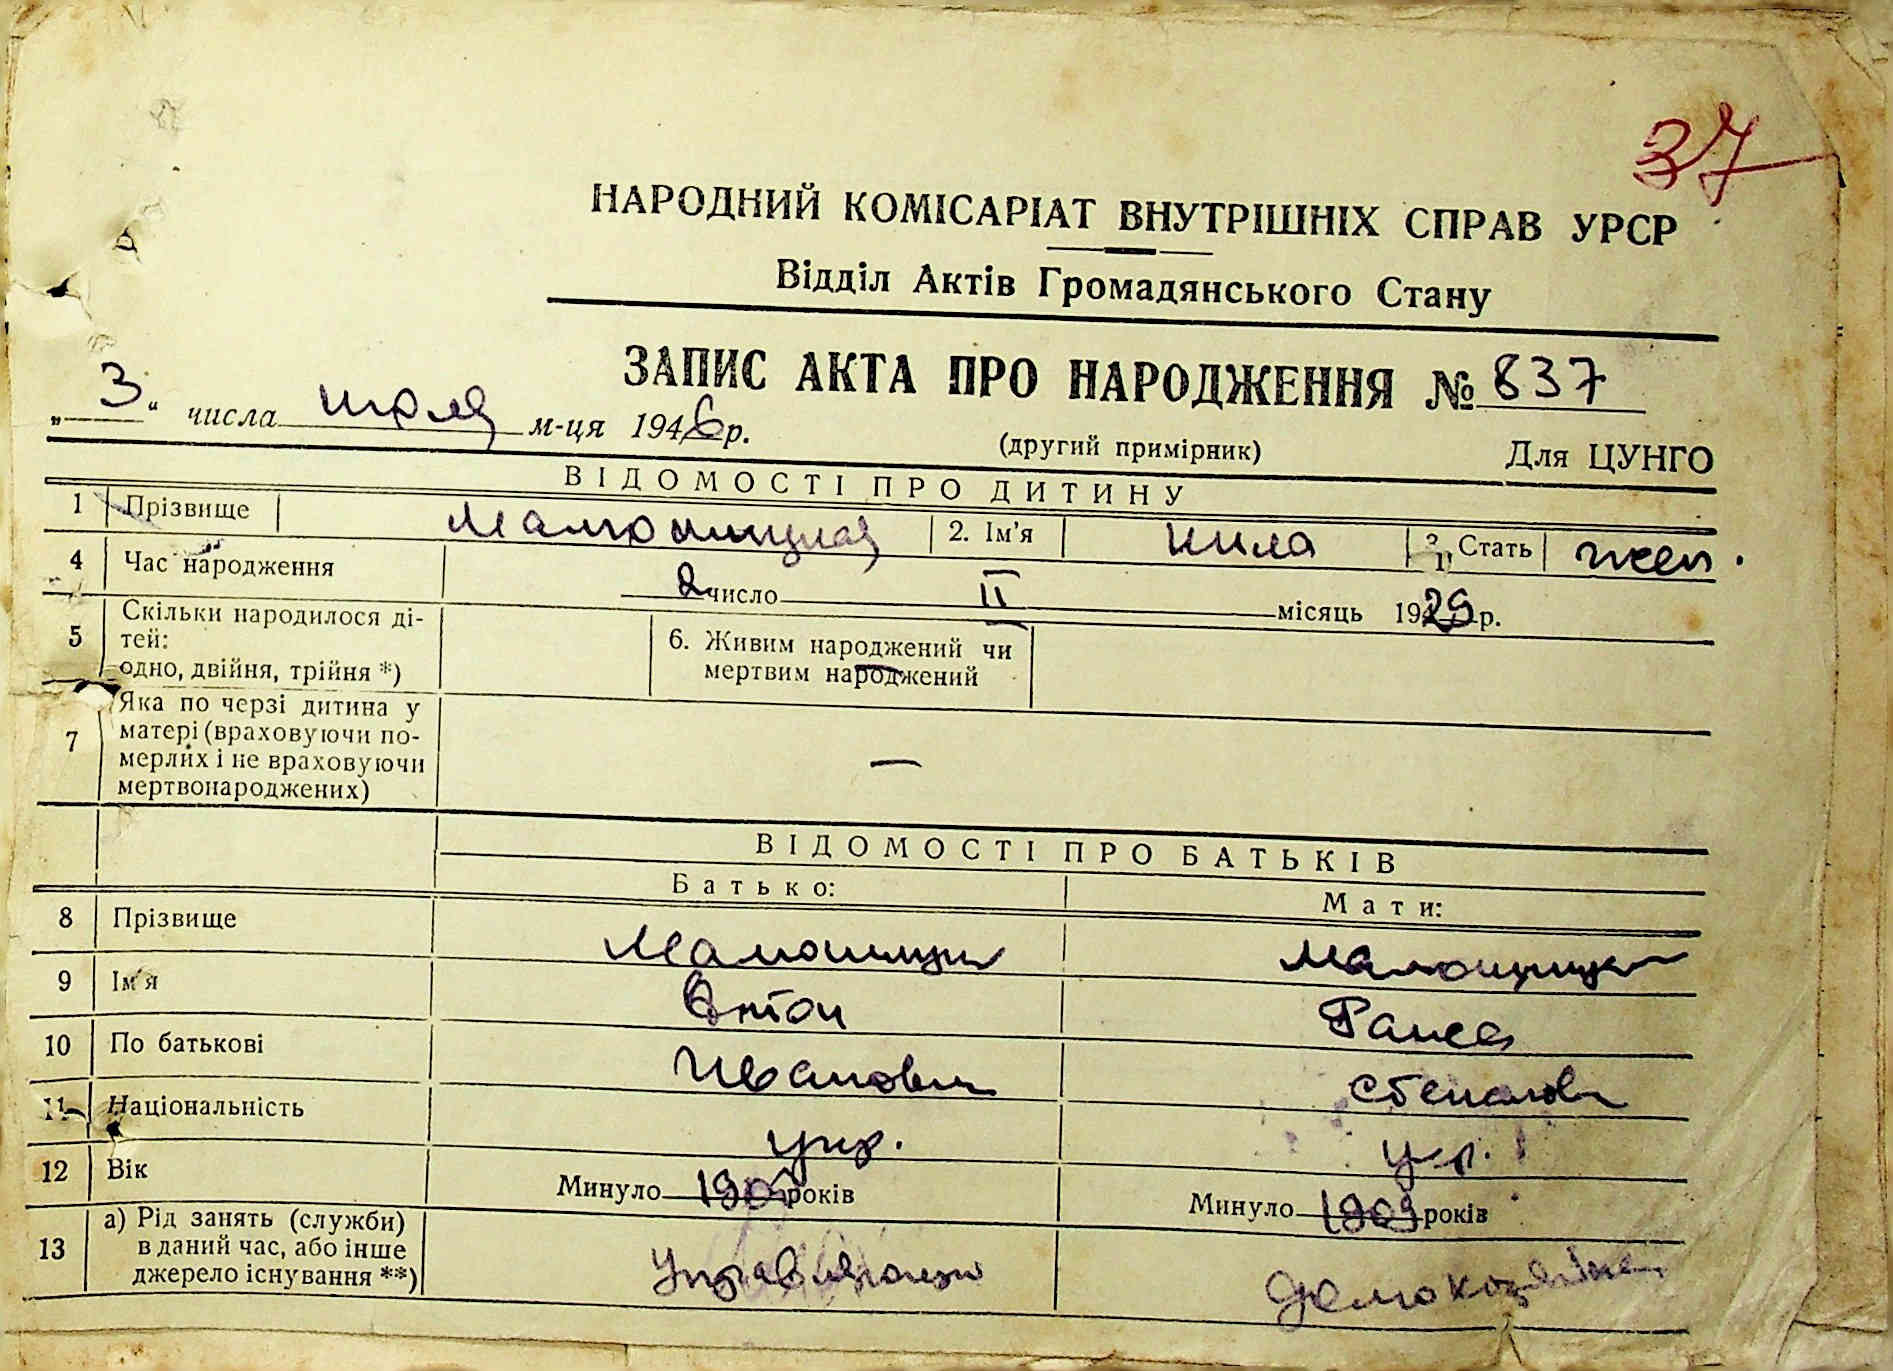 37
НАРОДНИЙ КОМІСАРІАТ ВНУТРІШНІХ СПРАВ УРСР
Відділ Актів Громадянського Стану
ЗАПИС АКТА ПРО НАРОДЖЕННЯ № 837
„ 3 “ числа июля м-ця 1946 р.
(другий примірник) Для ЦУНГО
ВІДОМОСТІ ПРО ДИТИНУ
1 Прізвище 2. Ім'я Нила 3. Стать жен.
4 Час народження 2 число II місяць 1929 р.
5 Скільки народилося ді-
тей:
одно, двійня, трійня *)
6. Живим народжений чи
мертвим народжений
7 Яка по черзі дитина у
матері (враховуючи по-
мерлих і не враховуючи
мертвонароджених) —
ВІДОМОСТІ ПРО БАТЬКІВ
Батько: Мати:
8 Прізвище
9 Ім'я Антон Раиса
10 По батькові Иванович Степанов
11 Національність укр. укр.
12 Вік Минуло років Минуло 1909 років
13 а) Рід занять (служби)
в даний час, або інше
джерело існування **)
Управляющий Домохозяйка